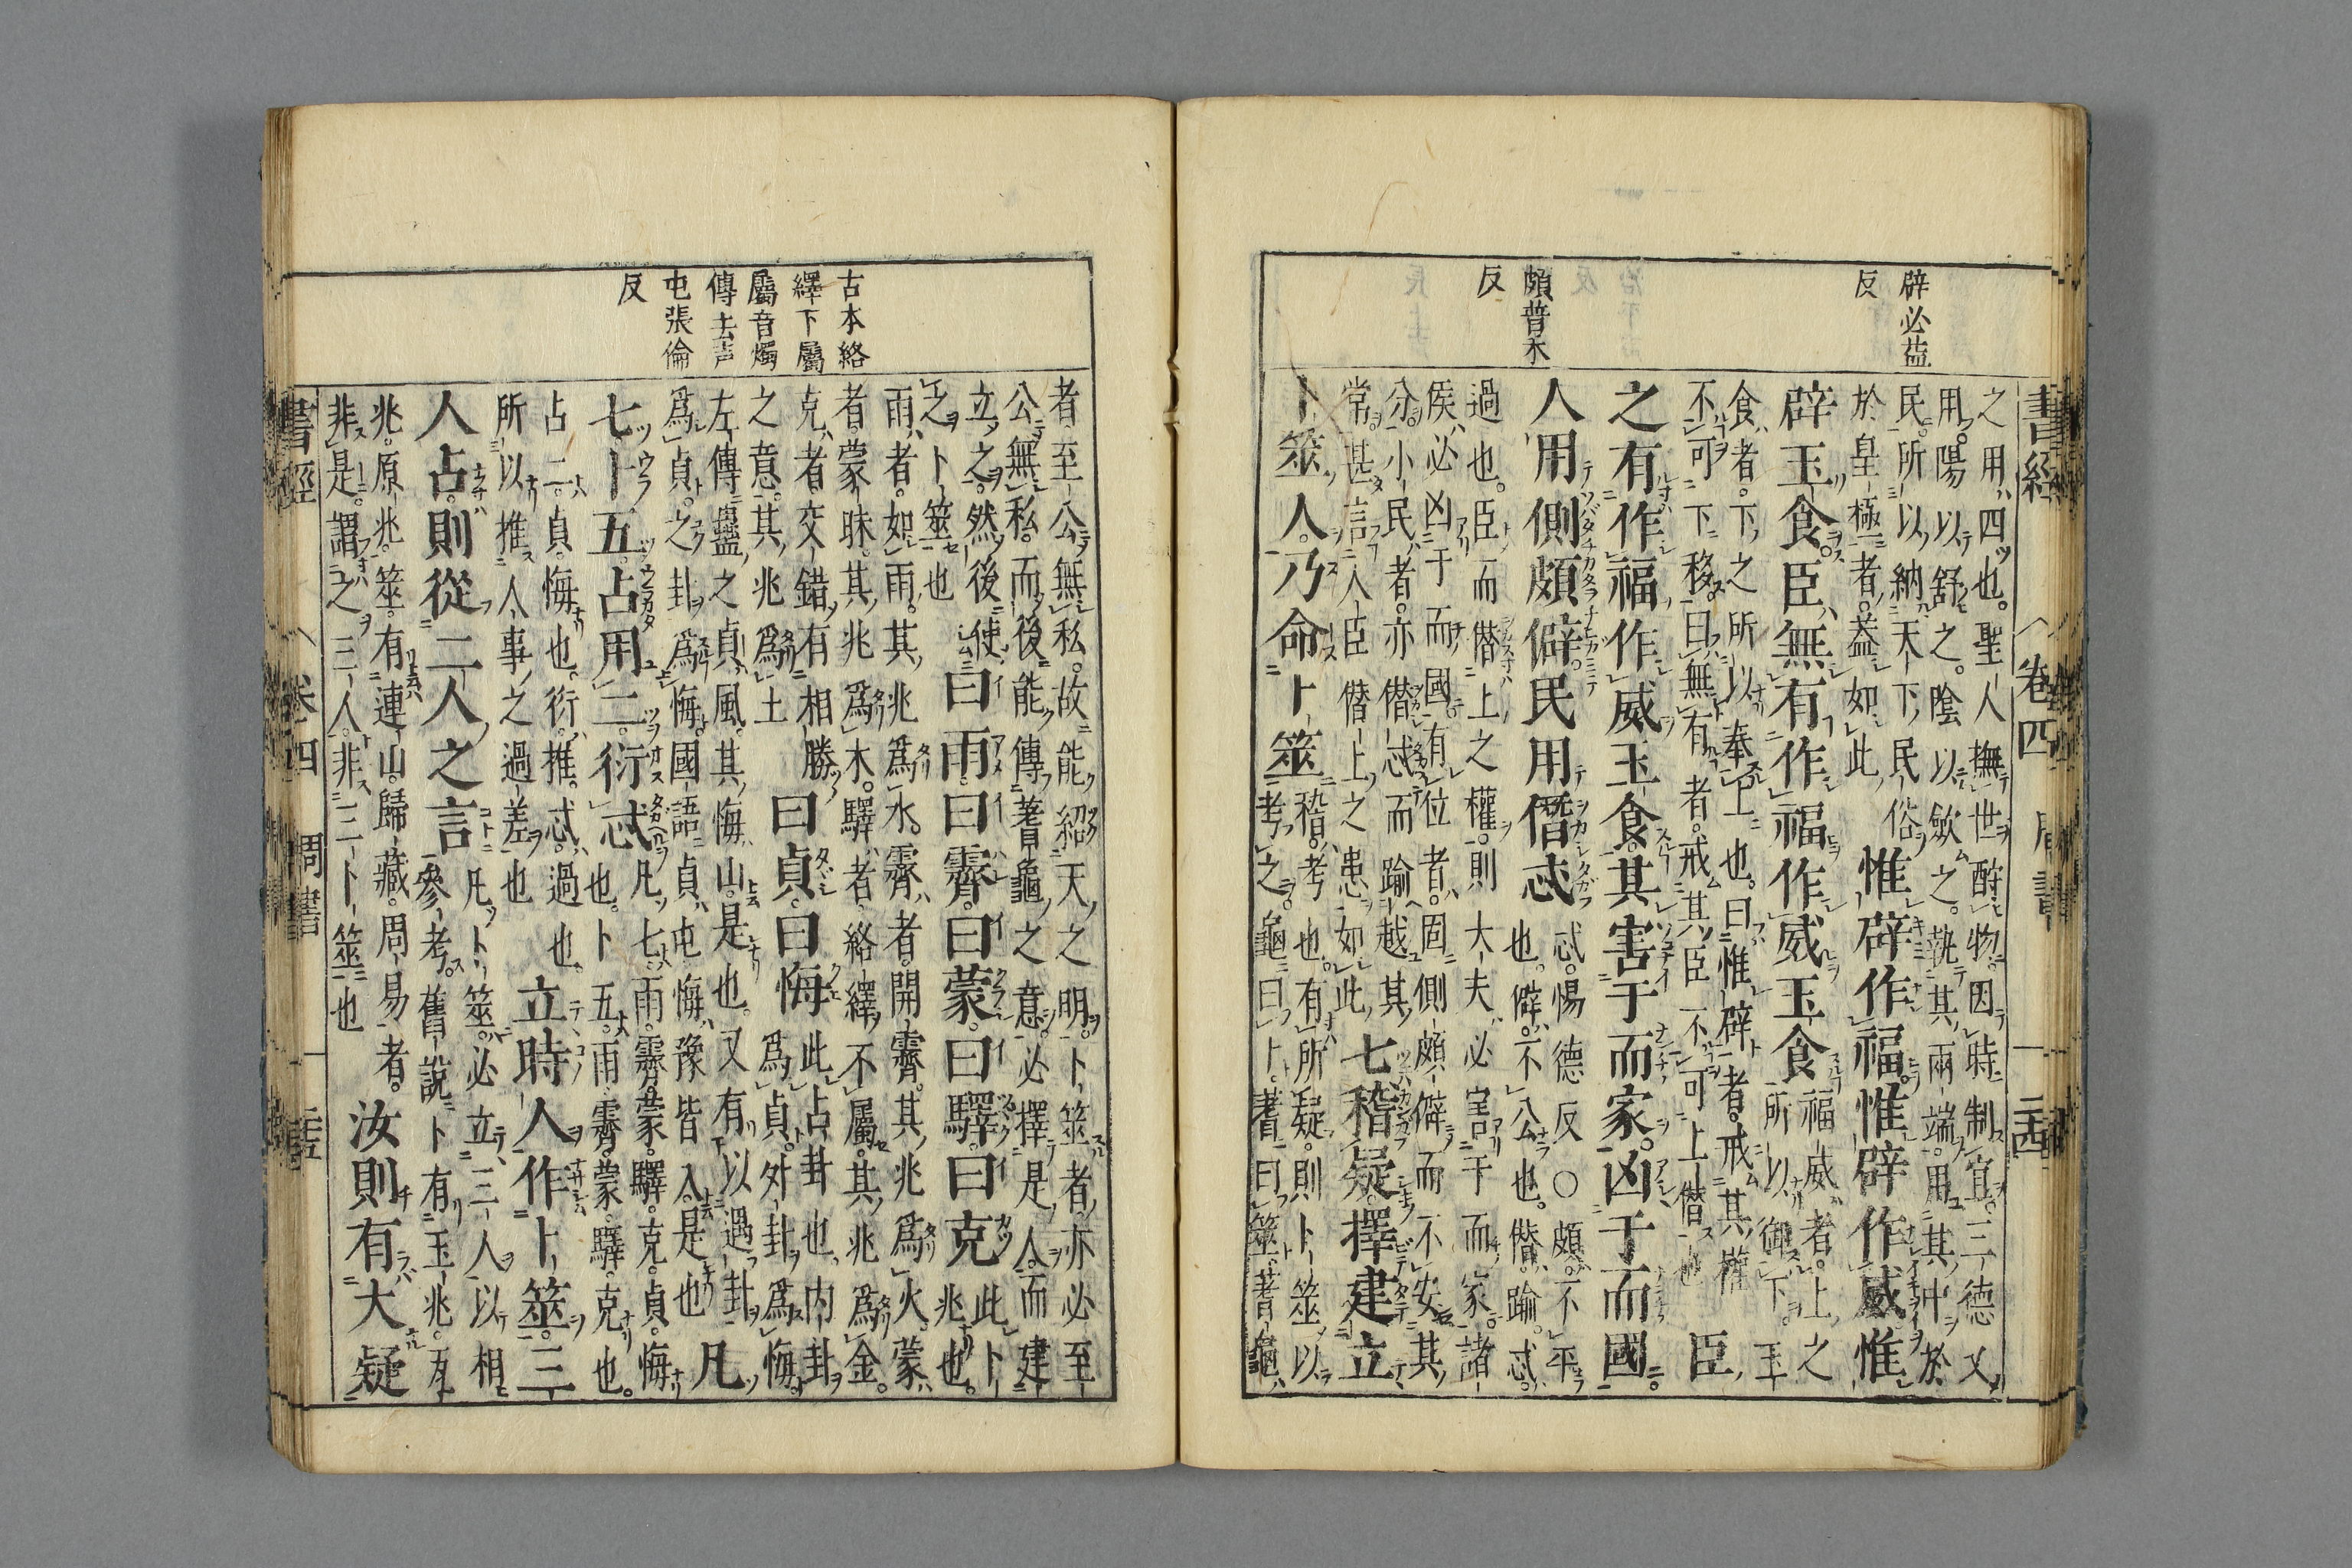 書經 卷四 周書 二十四
辟必益
反
頗普禾
反
之用四也。聖人撫世酬物。因時制宜。三德乂
用。陽以舒之。陰以斂之。執其兩端。用其中於
民。所以納天下民俗
於皇極者。蓋如此
惟辟作福。惟辟作威惟
辟玉食。臣無有作福作威玉食
福威者。上之
所以御下。玉
食者。下之所以奉上也。曰惟辟者。戒其權
不可下移。曰無有者。戒其臣不可上僭也
臣
之有作福作威玉食。其害于而家。凶于而國。
人用側頗僻。民用僭忒
忒。惕德反○頗。不平
也。僻。不公也。僭。踰。忒。
過也。臣而僭上之權。則大夫必害于而家。諸
侯必凶于而國。有位者。固側頗僻而不安其
分。小民者。亦僭忒而踰越其
常。甚言人臣僭上之患如此
七稽疑擇建立
卜筮人。乃命卜筮
稽。考也。有所疑。則卜筮以
考之。龜曰卜。蓍曰筮。蓍龜
古本絡
繹下屬
屬音燭
傳去声
屯張倫
反
者。至公無私。故能紹天之明。卜筮者。亦必至
公無私。而後能傳蓍龜之意。必擇是人而建
立之。然後使
之卜筮也
曰雨。曰霽。曰蒙。曰驛。曰克
此卜
兆也。
雨者。如雨。其兆爲水。霽者。開霽。其兆爲火。蒙
者。蒙昧。其兆爲木。驛者。絡繹不屬。其兆爲金。
克者。交錯有相勝
之意。其兆爲土
曰貞。曰悔
此占卦也。内卦
爲貞。外卦爲悔
左傳蠱之貞風。其悔山。是也。又有以遇卦
爲貞。之卦爲悔。國語貞屯悔豫皆八。是也
凡
七卜五。占用二。衍忒
凡七。雨霽蒙驛克貞悔
也。卜五。雨霽蒙驛克也。
占二。貞悔也。衍。推。忒。過也。
所以推人事之過差也
立時人作卜筮。三
人占。則從二人之言
凡卜筮。必立三人以相
參考。舊說卜有玉兆。瓦
兆。原兆。筮有連山。歸藏。周易者。
非是。謂之三人。非三卜筮也
汝則有大疑
書經 卷四 周書 二十五